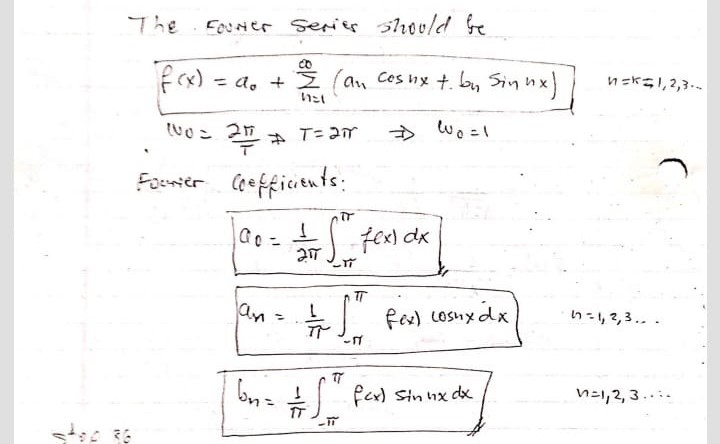 The Fourier Series should be
f(x) = a₀ + ∑ₙ₌₁^∞ (an cos nx + bn Sin nx) n=k=1,2,3...
W₀ = 2π/T ⇒ T=2π ⇒ W₀=1
Fourier Coefficients:
a₀ = 1/2π ∫_-π^π f(x) dx
an = 1/π ∫_-π^π f(x) cosnx dx n=1,2,3...
bn = 1/π ∫_-π^π f(x) sin nx dx n=1,2,3....